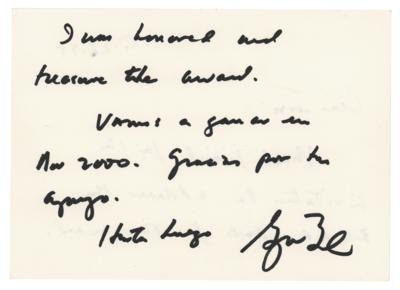 I was honored and
treasure the award.
Vamos a ganar en
Nov 2000. Gracias por tu
apoyo.
Hasta luego